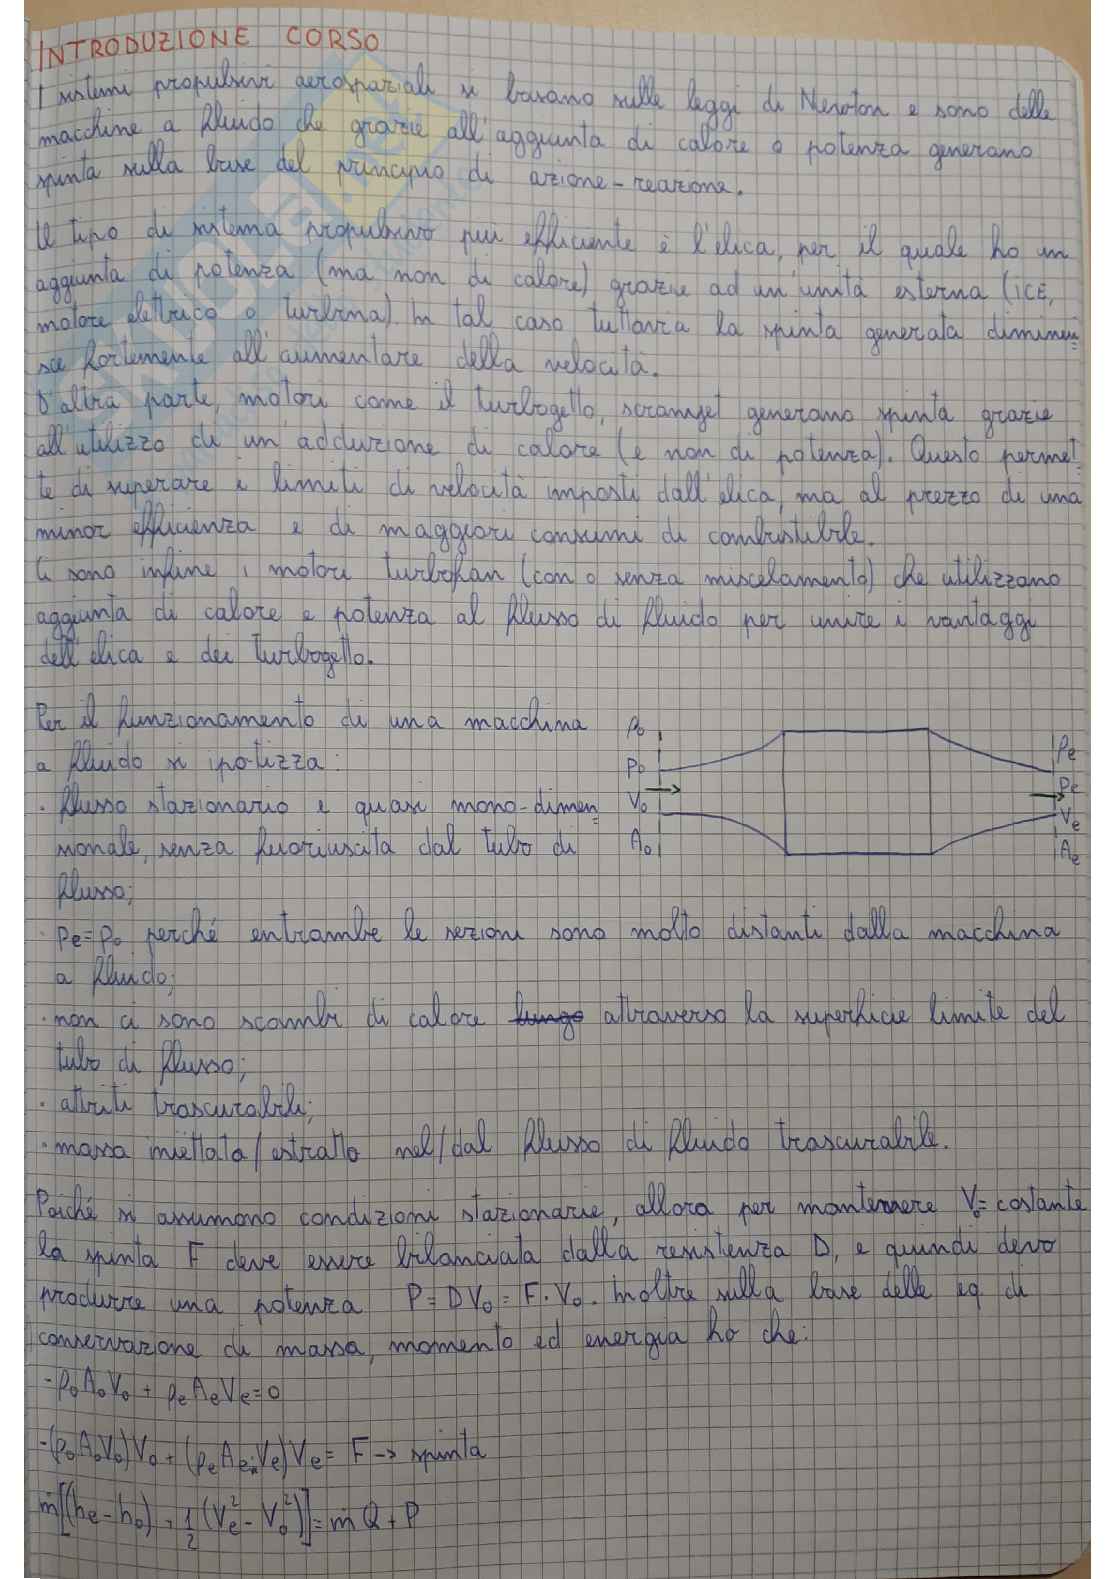 INTRODUZIONE CORSO
I sistemi propulsivi aerospaziali si basano sulle leggi di Newton e sono delle
macchine a fluido che grazie all'aggiunta di calore o potenza generano
spinta sulla base del principio di azione-reazione.
Il tipo di sistema propulsivo più efficiente è l'elica, per il quale ho un
aggiunta di potenza (ma non di calore) grazie ad un'unità esterna (ICE,
motore elettrico o turbina). In tal caso tuttavia la spinta generata diminui=
sce fortemente all'aumentare della velocità.
D'altra parte, motori come il turbogetto, scramjet generano spinta grazie
all'utilizzo di un adduzione di calore (e non di potenza). Questo permet=
te di superare i limiti di velocità imposti dall'elica, ma al prezzo di una
minor efficienza e di maggiori consumi di combustibile.
Ci sono infine i motori turbofan (con o senza miscelamento) che utilizzano
aggiunta di calore e potenza al flusso di fluido per unire i vantaggi
dell'elica e dei turbogetto.
Per il funzionamento di una macchina
a fluido si ipotizza:
· flusso stazionario e quasi mono-dimen=
sionale, senza fuoriuscita dal tubo di
flusso;
ρ₀
p₀
V₀
A₀
ρe
pe
Ve
Ae
· pe=p₀ perché entrambe le sezioni sono molto distanti dalla macchina
a fluido;
· non ci sono scambi di calore lungo attraverso la superficie limite del
tubo di flusso;
· attriti trascurabili;
· massa iniettata/estratta nel/dal flusso di fluido trascurabile.
Poiché si assumono condizioni stazionarie, allora per mantenere V₀= costante
la spinta F deve essere bilanciata dalla resistenza D, e quindi devo
produrre una potenza P = DV₀ = F·V₀. Inoltre sulla base delle eq di
conservazione di massa, momento ed energia ho che:
-ρ₀A₀V₀ + ρeAeVe=0
-(ρ₀A₀V₀)V₀ + (ρeAe·Ve)Ve = F → spinta
ṁ[(he-h₀) + 1/2 (Ve²- V₀²)]= ṁ Q + P